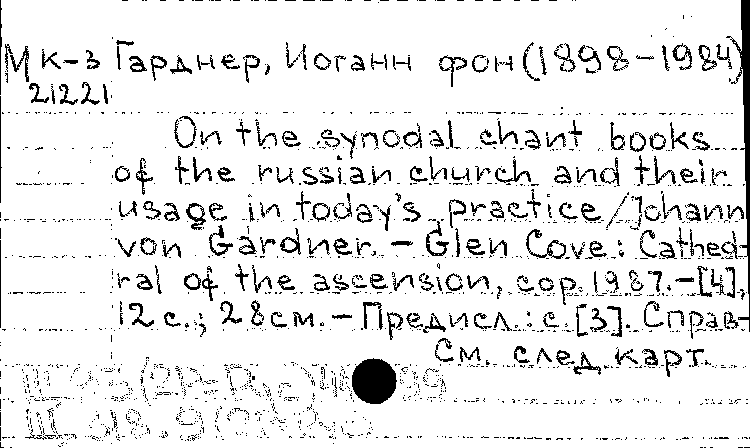 МК-3 Гарднер, Иоганн фон (1898-1984)
21221
On the synodal chant books
of the russian church and their
usage in today's practice / Johann
von Gardner. - Glen Cove: Cathed-
ral of the ascension, cop. 1987. - [4],
12 с.; 28 см. - Предисл.: с. [3]. Справ-
См. след. карт.